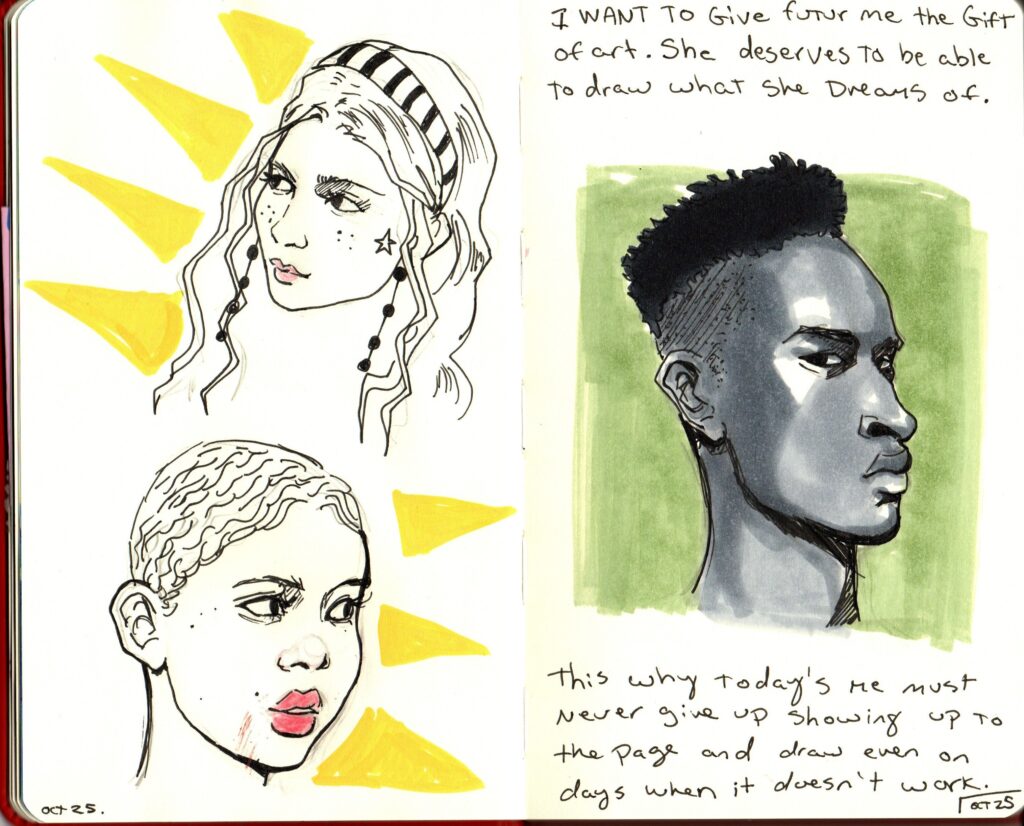 I WANT TO Give futur me the Gift
of art. She deserves to be able
to draw what She Dreams of.
This why Today's me must
Never give up showing up to
the page and draw even on
days when it doesn't work.
oct 25.
oct 25